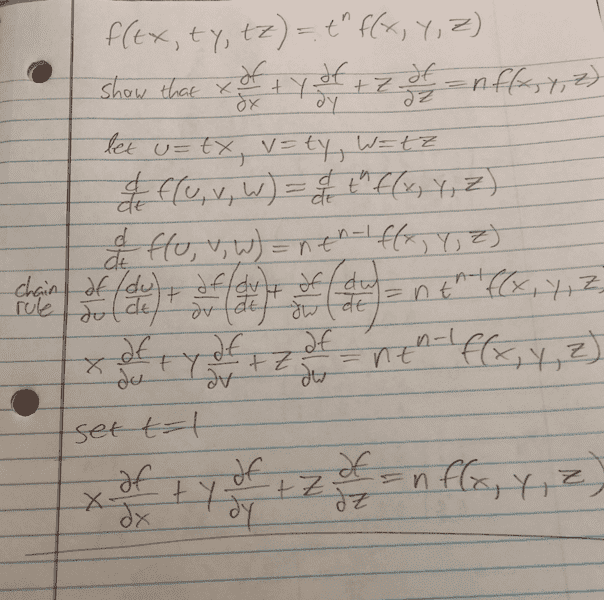 f(tx, ty, tz) = t^n f(x, y, z)
show that x ∂f/∂x + y ∂f/∂y + z ∂f/∂z = n f(x, y, z)
let u = tx, v = ty, w = tz
d/dt f(u, v, w) = d/dt t^n f(x, y, z)
d/dt f(u, v, w) = n t^(n-1) f(x, y, z)
chain rule ∂f/∂u (du/dt) + ∂f/∂v (dv/dt) + ∂f/∂w (dw/dt) = n t^(n-1) f(x, y, z
x ∂f/∂u + y ∂f/∂v + z ∂f/∂w = n t^(n-1) f(x, y, z)
set t=1
x ∂f/∂x + y ∂f/∂y + z ∂f/∂z = n f(x, y, z)